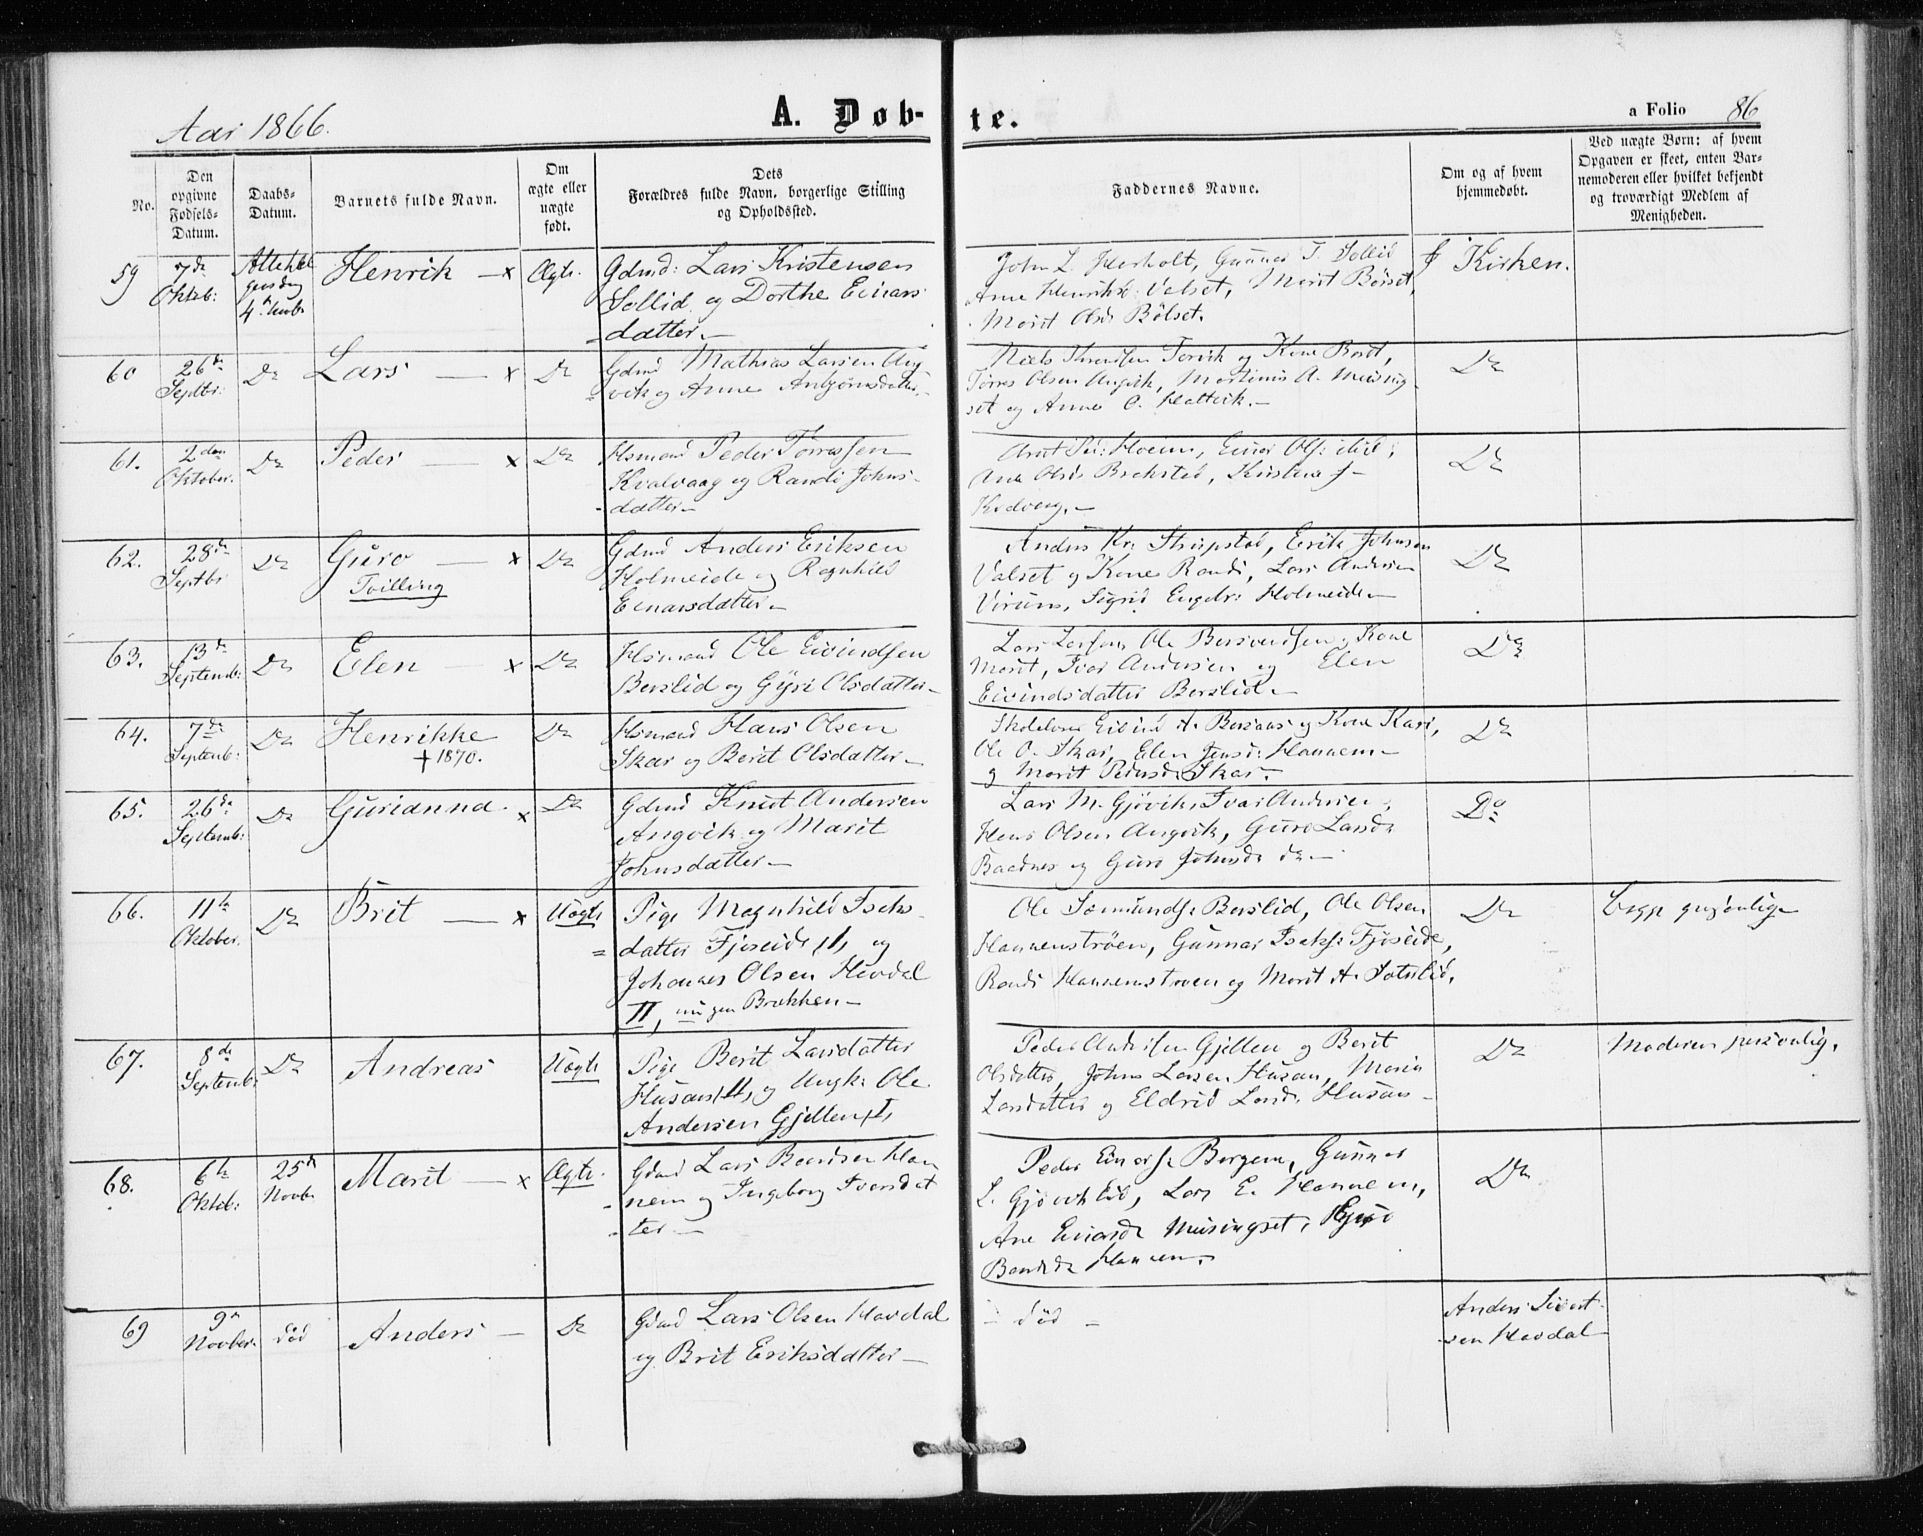 Aar 1866.
A. Døb-
te.
a Folio 86
No.
Den
opgivne
Fødsels-
Datum.
Daabs-
Datum.
Barnets fulde Navn.
Om
ægte eller
nægte
født.
Dets
Forældres fulde Navn, borgerlige Stilling
og Opholdssted.
Faddernes Navne.
Om og af hvem
hjemmedøbt.
Ved nægte Børn: af hvem
Opgaven er skeet, enten Bar-
nemoderen eller hvilket bekjendt
og troværdigt Medlem af
Menigheden.
59
7de
Oktob:
4de
Henrik — x
Ægte.
Gdmd: Lars Kristensen
Sollid og Dorthe Einars
datter —
John L. Gunner T. Sollid
Anne Henriksd: Valset, Marit Børset,
Marit Olsd: Bølset.
I Kirken.
60
26de
Septbr:
Do
Lars — x
Do
Gdmd Mathias Larsen Ang
vik og Anne
Niels Torvik og Kone Beret,
Olsen Angvik, Martinus A. Meising
set og Anne O. Hattvik. —
Do
61.
2den
Oktober.
Do
Peder — x
Do
Hsmand Peder Torresen
Kvalvaag og Randi Johns-
datter —
Arnt Hoem, Einar Ols:
Ane Olsd:
Kvalvaag. —
Do
62.
28de
Septbr
Do
Guro — x
Tvilling
Do
Gdmd Anders Eriksen
Holmeide og Ragnhild
Einarsdatter —
Anders Kr: Erik Johnsen
Valset og Kone Randi, Lars Andersen
Virum, Sigrid Engebr: Holmeide —
Do
63.
13de
Septemb:
Do
Elen — x
Do
Hsmand Ole Eivindsen
Berslid og Gjøri Olsdatter —
Lars Larsen, Ole Kone
Marit, Ivar Andersen og Elen
Eivindsdatter Berslid —
Do
64.
7de
Septemb:
Do
Henrikke
+ 1870.
Do
Hsmand Hans Olsen
Skar og Berit Olsdatter —
Eivind A. og Kone Kari,
Ole O. Skar, Elen Jensd: Hannem —
og Marit Pedersd: Skar.
Do
65.
26de
Septemb:
Do
Gurianna. x
Do
Gdmd Knut Andersen
Angvik og Marit
Johnsdatter —
Lars M. Gjøvik, Ivar Andersen,
Hans Olsen Angvik, Guro Larsd:
Baadnes og Guro Johnsd: do —
Do
66.
11te
Oktober.
Do
Brit — x
Uægte
Pige Magnhild Iseks-
datter Fjøseide /1/ og
Johannes Olsen Hovdal
II, Brekken —
Ole Sæmunds: Berslid, Ole Olsen
Hannemstrøen, Gunnar Iseks: Fjøseide,
Randi Hannemstrøen og Marit A.
Do
67.
8de
Septemb:
Do
Andreas
Uægte
Pige Berit Larsdatter
Husaas /1/, og Ungk: Ole
Andersen Gjelten /1/
Peder Andersen Gjelten og Berit
Olsdatter, Johns Larsen Husan, Maria
Larsdatter og Eldrid Larsd: Husaas —
Do
Moderen personlig.
68.
6te
Oktob:
25de
Novbr
Marit — x
Ægte.
Gdmd Lars Baardsen Han
nem og Ingeborg Iversdat
ter —
Peder Einars: Bergem, Gunner
L. Gjøvik Lars E. Hannem,
Ane Einarsd: Meisingset, Guro
Baardsd: Hannem.
Do
69
9de
Novber.
død
Anders —
Do
Gdmd Lars Olsen Hovdal
og Brit Eriksdatter —
— død —
Anders Sivert-
sen Hovdal